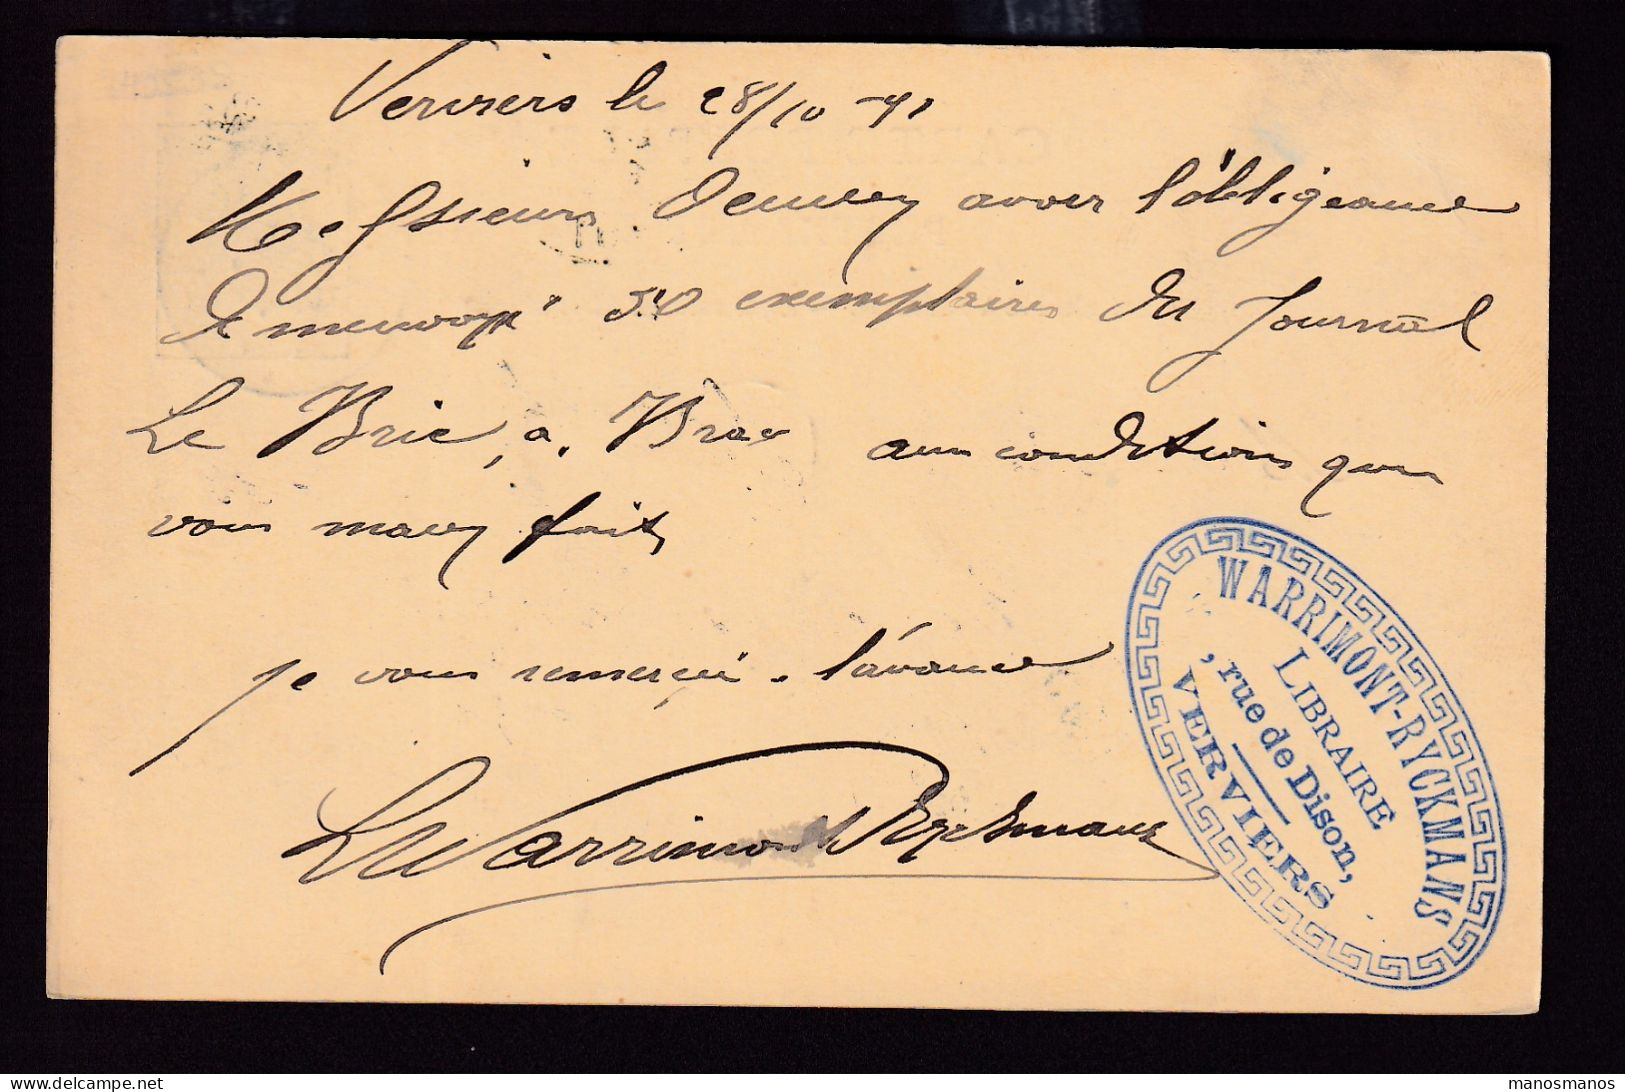 Verviers le 28/10-91
Messieurs Veuillez avoir l'obligeance
de m'envoyé 50 exemplaires du Journal
Le Bric, à. Brac aux conditions que
vous mavez fait,
je vous remercie à l'avance
LWarrimont Ryckmans
WARRIMONT-RYCKMANS
LIBRAIRE
, rue de Dison,
VERVIERS
manosmanos